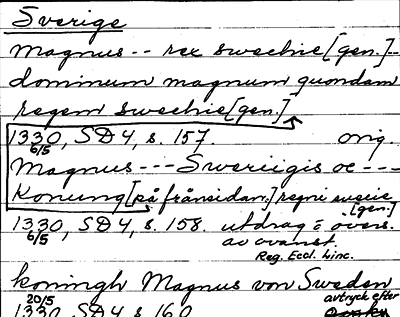 Sverige
Magnus -- rex swechie [gen.] -
dominum magnum quondam
regem swechie [gen.]
1330, SD 4, s. 157. orig.
6/5
Magnus --- Sweriigis oc ---
Konung [på frånsidan.] regni suecie
[gen.]
1330, SD 4, s. 158. utdrag = övers.
6/5
av avanst.
Reg. Eccl. Linc.
koningh Magnus von Sweden
20/5 avtryck efter
1330 SD 4 s. 160